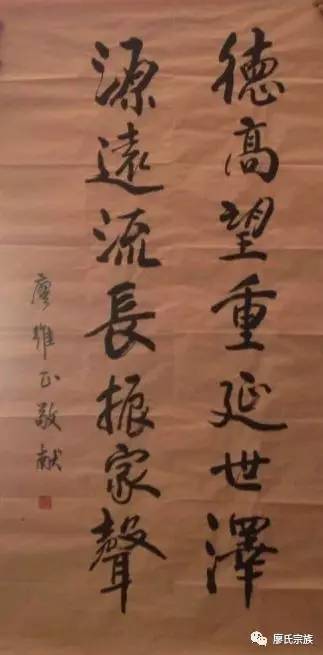 德高望重延世澤
源遠流長振家聲
廖維正敬献
廖氏宗族